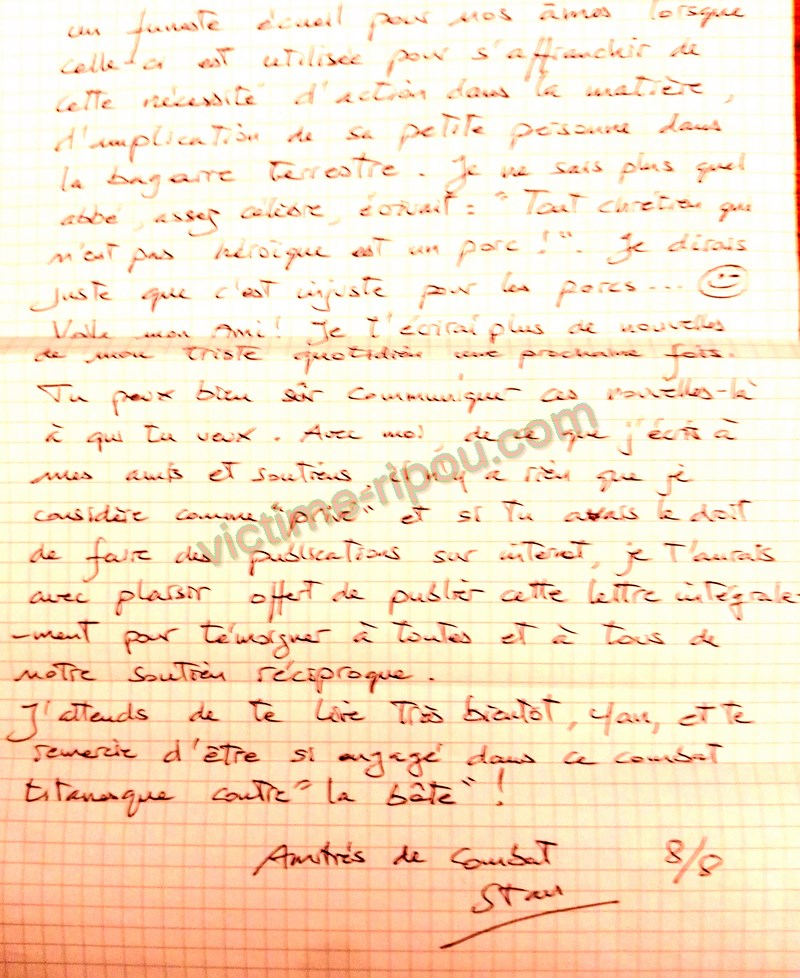 un funeste écueil pour nos âmes lorsque
celle-ci est utilisée pour s'affranchir de
cette nécessité d'action dans la matière,
d'implication de sa petite personne dans
la bagarre terrestre. Je ne sais plus quel
abbé, assez célèbre, écrivait : "Tout chrétien qui
n'est pas héroïque est un porc !". Je dirais
juste que c'est injuste pour les porcs...
Voilà mon Ami ! Je t'écrirai plus de nouvelles
de mon triste quotidien une prochaine fois.
Tu peux bien sûr communiquer ces nouvelles-là
à qui tu veux. Avec moi, de ce que j'écris à
mes amis et soutiens, il n'y a rien que je
considère comme "privé" et si tu avais le droit
de faire des publications sur internet, je t'aurais
avec plaisir offert de publier cette lettre intégrale-
-ment pour témoigner à toutes et à tous de
notre soutien réciproque.
J'attends de te lire très bientôt, Yan, et te
remercie d'être si engagé dans ce combat
titanesque contre "la bête" !
Amitiés de Combat 8/8
Stan
victime-ripou.com